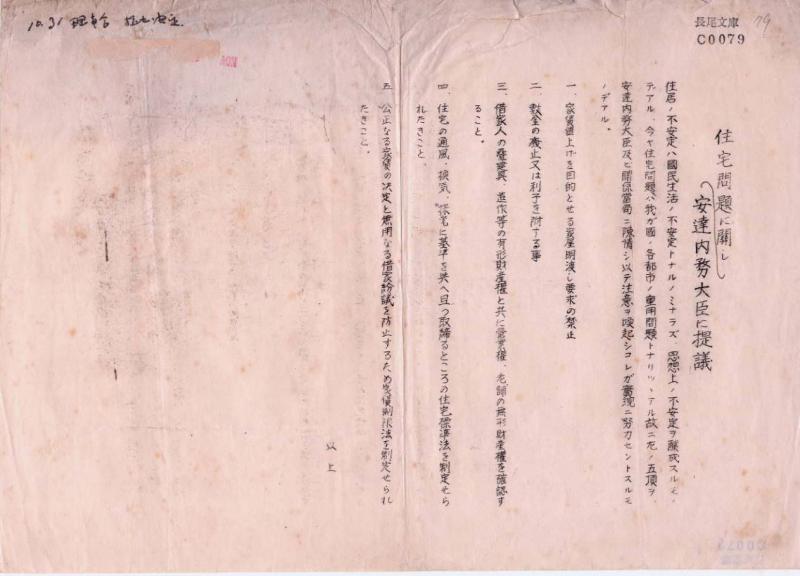 10.31
長尾文庫
C0079
79
住宅問題に関し
安達内務大臣に提議
住居ノ不安定ハ國民生活ノ不安定トナルノミナラズ、思想上ノ不安定ヲ醸成スルモノ
デアル、今ヤ住宅問題ハ我ガ國ノ各部市ノ重用問題トナリツヽアル故ニ左ノ五項ヲ
安達内務大臣及ビ関係當局ニ陳情シ以テ注意ヲ喚起シコレガ實現ニ努力セントスルモ
ノデアル。
一、家賃値上げを目的とせる家屋明渡し要求の禁止
二、敷金の廃止又は利子を附する事
三、借家人の造作等の有形財産権と共に営業権、老舗の無形財産権を確認す
ること。
四、住宅の通風、換気、採光に基準を与へ且つ取締るところの住宅標準法を制定せら
れたきこと。
五、公正なる家賃の決定と無用なる借家紛議を防止するため家賃制限法を制定せられ
たきこと。
以上